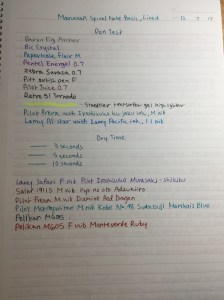 Maruman Spiral Note Basic, Lined 12 2 17
Pen Test
Bic Crystal
Papermate Flair M
Pentel Energel 0.7
Zebra Sarasa 0.7
Pitt artist pen F
Pilot Juice 0.7
Retro 51 Tornado
Staedtler textsurfer gel highlighter
Pilot Prera, M nib Iroshizuku ink, M nib
Lamy Al-star with Lamy Pacific ink, 1.1 nib
Dry Time
3 seconds
5 seconds
10 seconds
Lamy Safari F nib Pilot Iroshizuku Murasaki-shikibu
Sailor M nib
Pilot Prera M nib Diamine Red Dragon
Pilot Metropolitan M nib Kobe No. 48 Marshal's Blue
Pelikan M605
Pelikan M605 F nib Monteverde Ruby